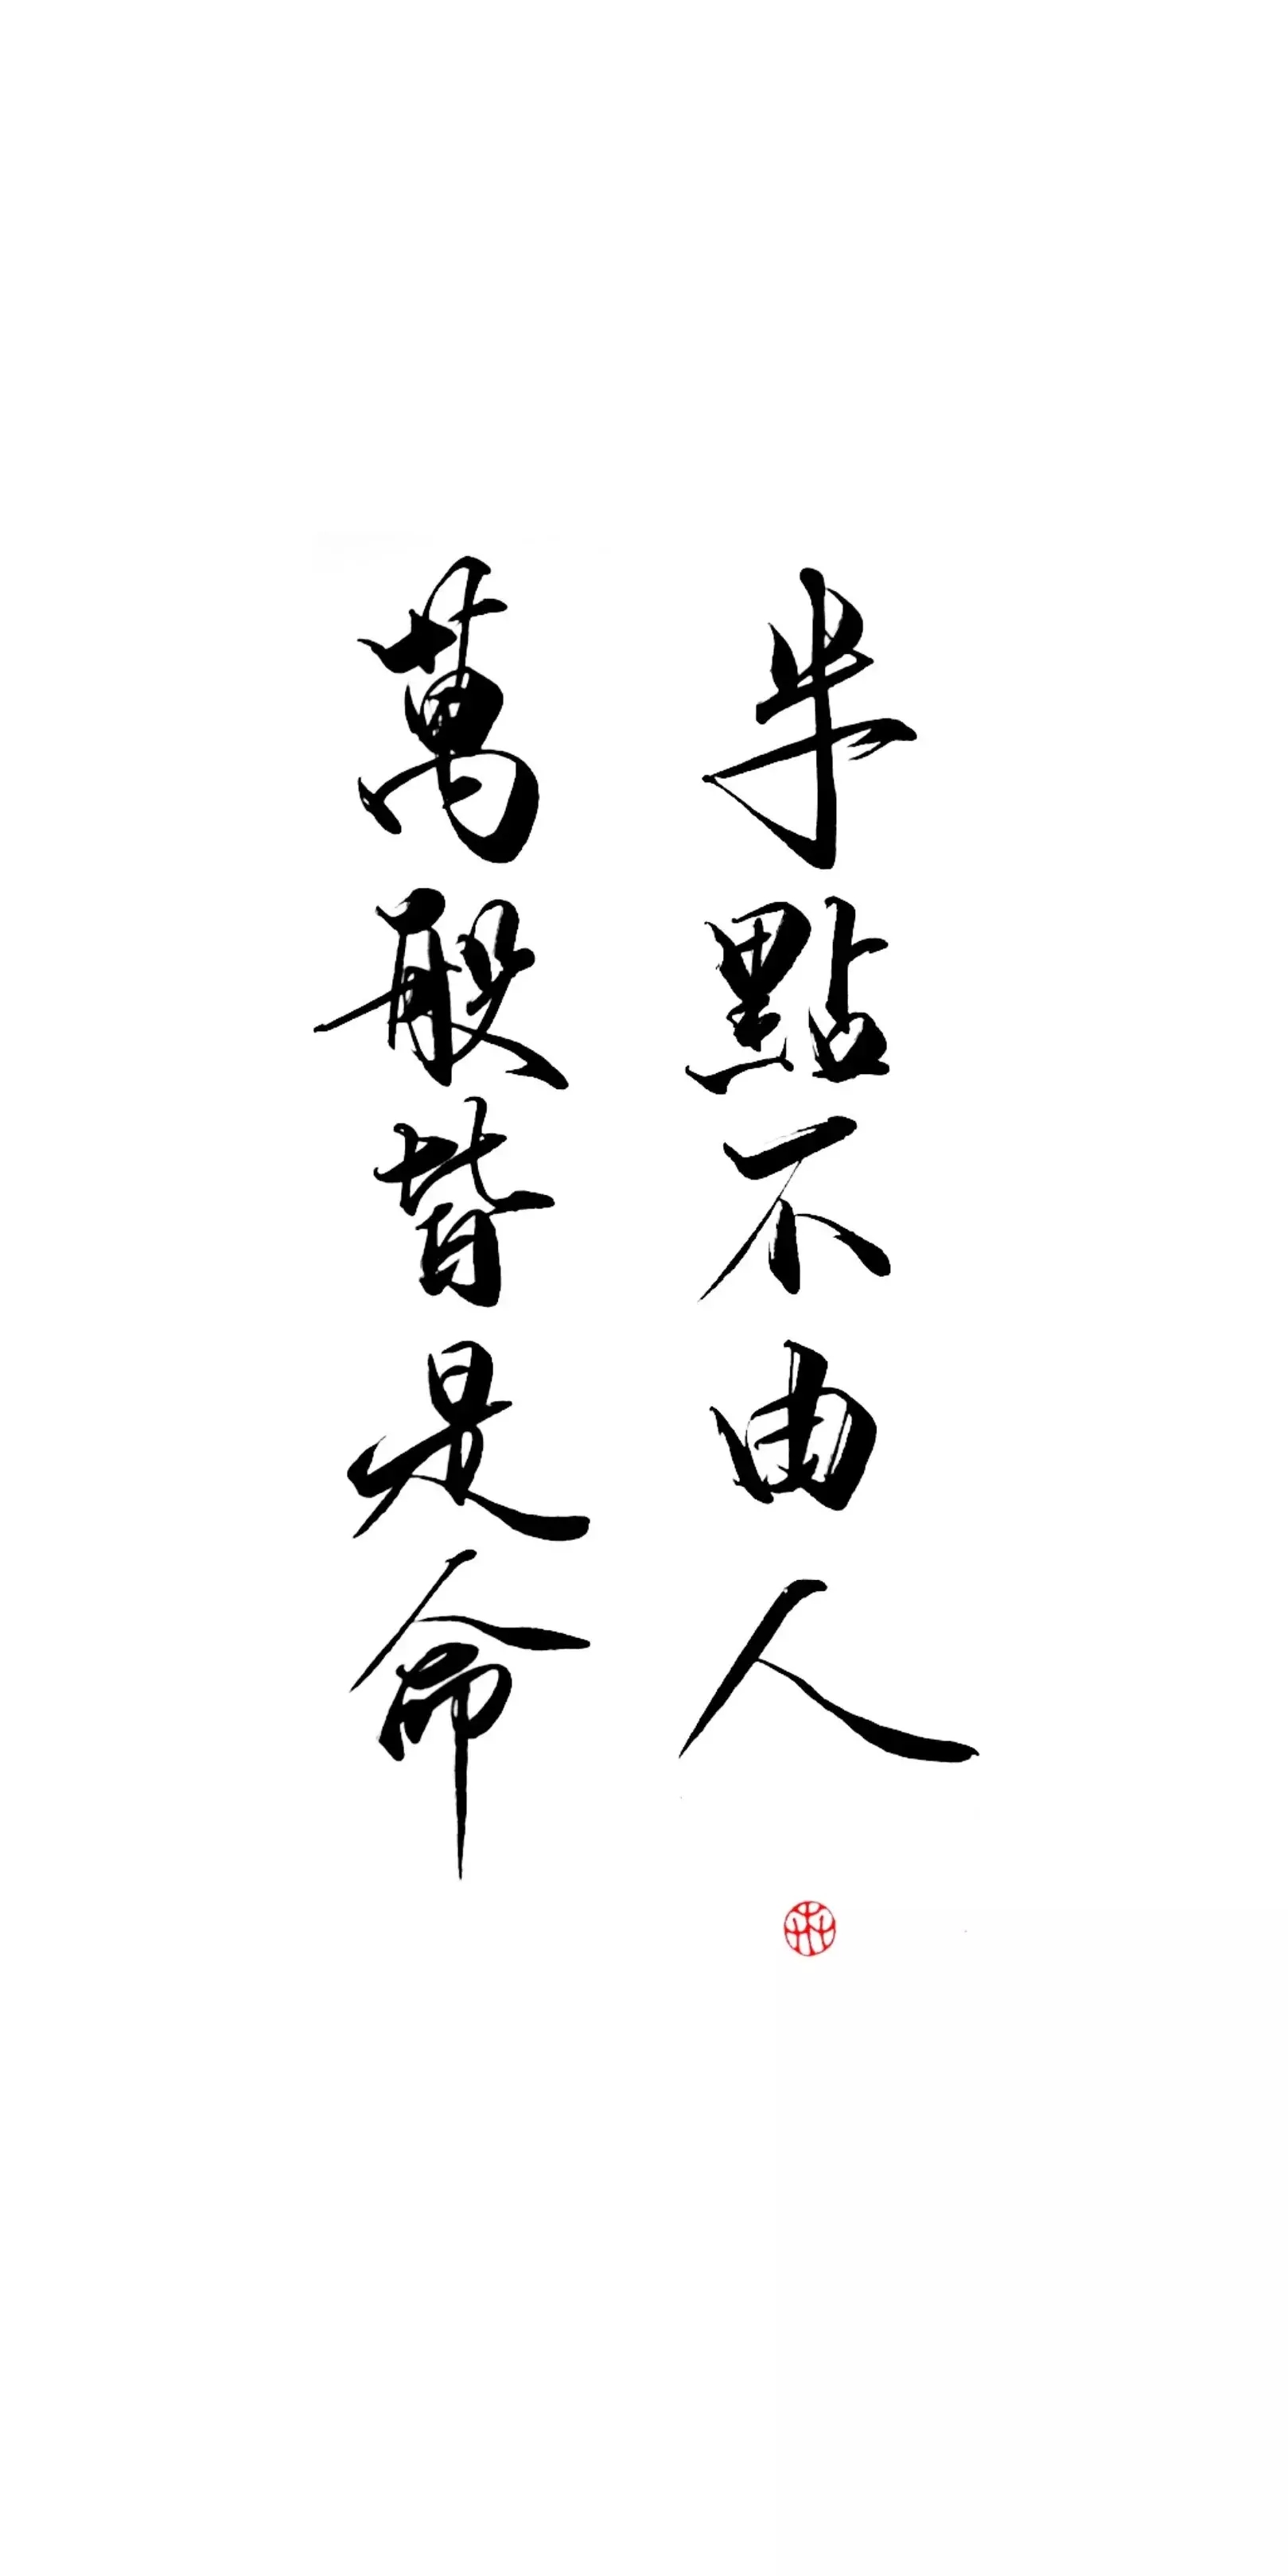 萬般皆是命
半點不由人